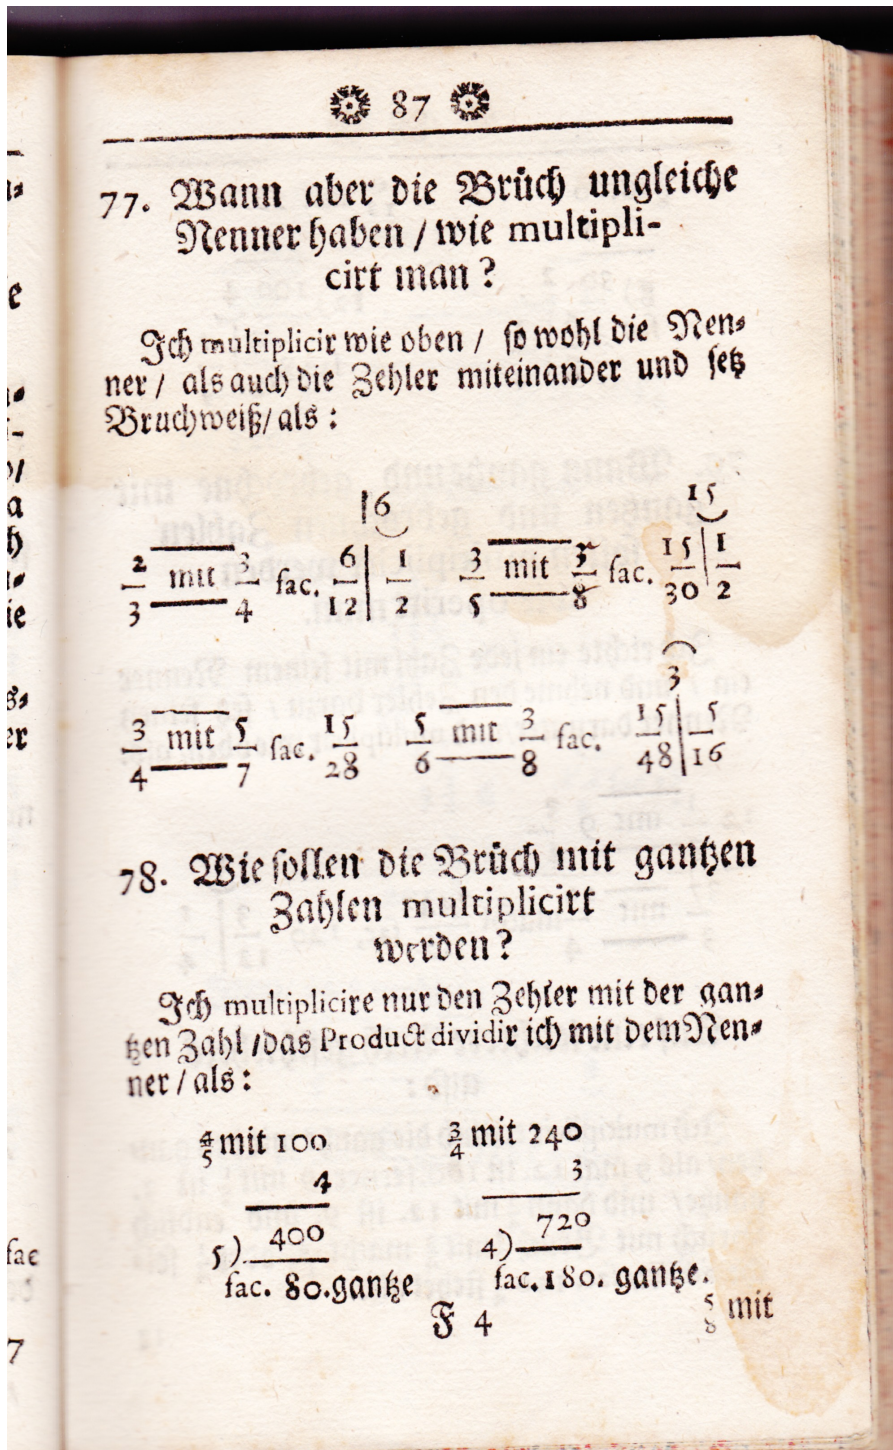 87
77. Wann aber die Brüch ungleiche
Nenner haben / wie multipli-
cirt man?
Ich multiplicir wie oben / so wohl die Nen-
ner / als auch die Zehler miteinander und setz
Bruchweiß / als:
|6 15
2/3 mit 3/4 fac. 6/12 | 1/2 3/5 mit 5/8 fac. 15/30 | 1/2
3
3/4 mit 5/7 fac. 15/28 5/6 mit 3/8 fac. 15/48 | 5/16
78. Wie sollen die Brüch mit gantzen
Zahlen multiplicirt
werden?
Ich multiplicire nur den Zehler mit der gan-
tzen Zahl / das Product dividir ich mit dem Nen-
ner / als:
4/5 mit 100 3/4 mit 240
4 3
5) 400 4) 720
fac. 80. gantze fac. 180. gantze.
F 4 5/8 mit
e
a
h
ie
er
fac
7